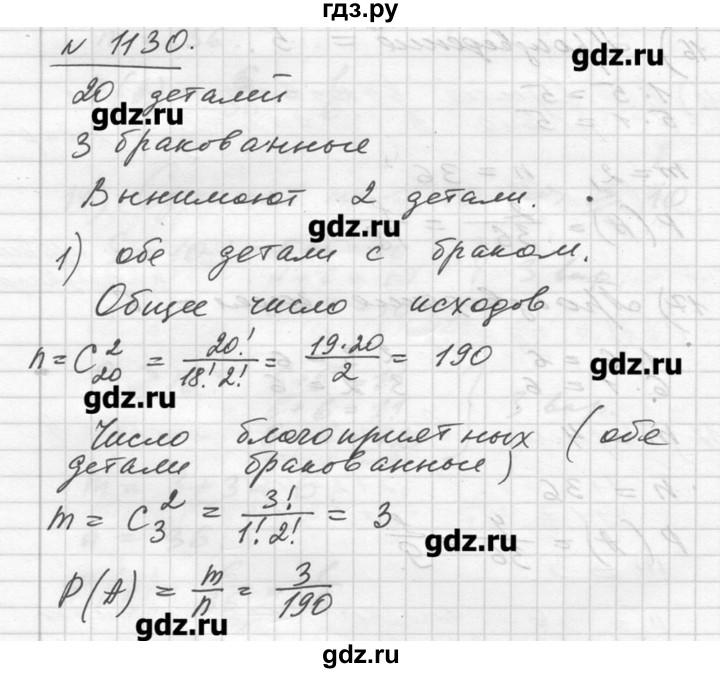 гдз.ру
N 1130.
gdz.ru
20 деталей
gdz.ru
3 бракованные
Вынимают 2 детали.
gdz.ru
1) обе детали с браком.
Общее число исходов
n = C₂₀² = 20!/18!2! = 19·20/2 = 190
gdz.ru
gdz.ru
Число благоприятных (обе
детали бракованные)
m = C₃² = 3!/1!2! = 3
gdz.ru
P(A) = m/n = 3/190
gdz.ru
gdz.ru